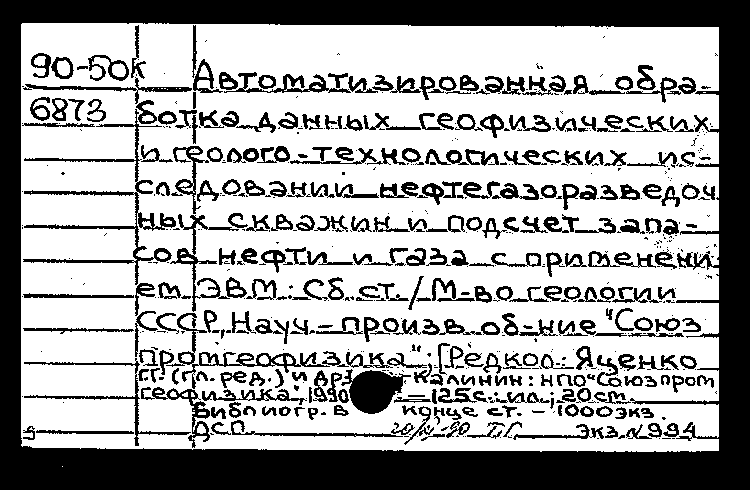 90-50к Автоматизированная обра-
6873 ботка данных геофизических
и геолого-технологических ис-
следовании нефтегазоразведоч
ных скважин и подсчет запа-
сов нефти и газа с применени
ем ЭВМ: Сб. ст. / М-во геологии
СССР, Науч.-произв. об-ние "Союз
промгеофизика"; [Редкол.: Яценко
Г.Г. (гл. ред.) и др.] Калинин: НПО "Союзпром
геофизика", 1990 — 125 с.: ил.; 20 см.
Библиогр. в конце ст. — 1000 экз.
ДСП. Т.Г. Экз. N 994